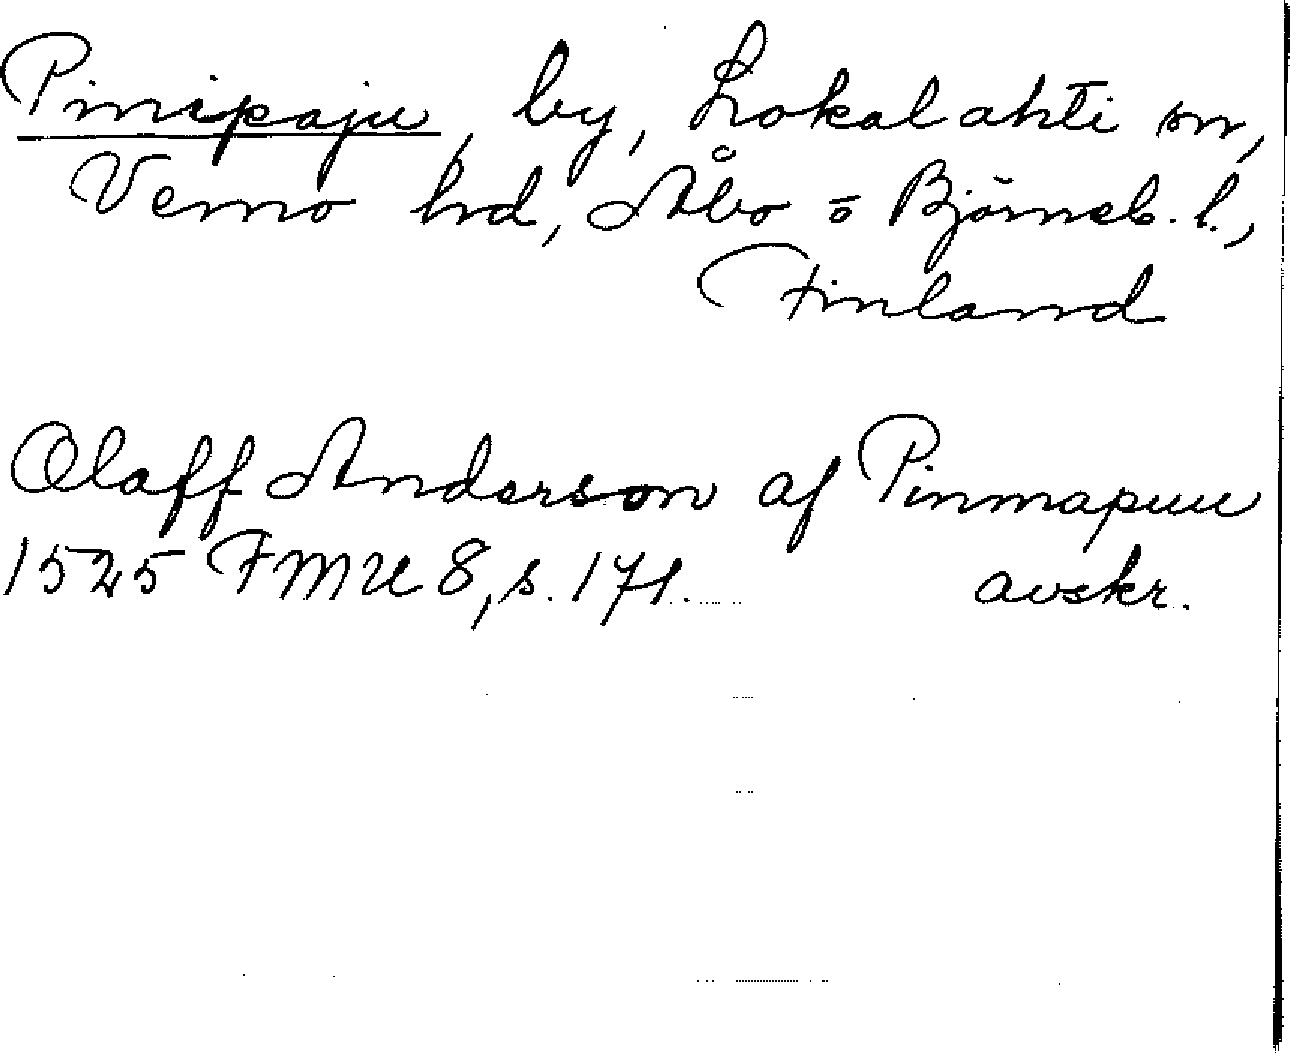 Pinipaju, by, Lokalahti sn,
Vemo hd, Åbo o Björneb. l.,
Finland
Olaff Anderson af Pinmapuu
1525 FMU 8, s. 171. avskr.